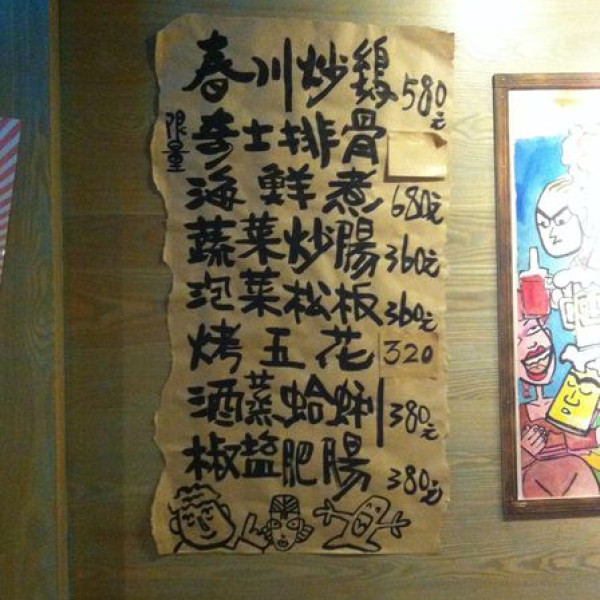 春川炒鷄 580元
限量 奇士排骨
海鮮煮 680元
蔬菜炒腸 360元
泡菜松板 360元
烤五花 320
酒蒸蛤蜊 380元
椒盐肥腸 380元